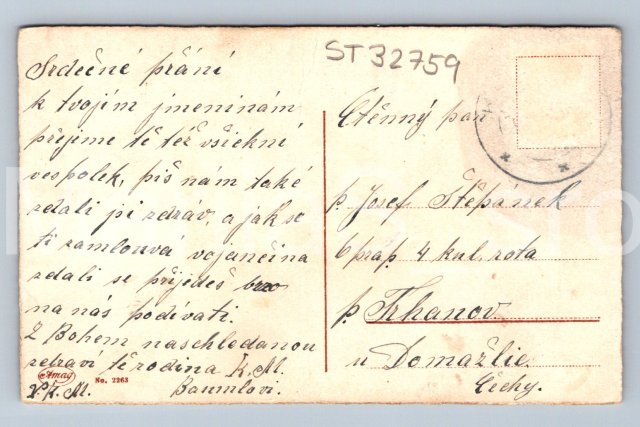 ST 32759
Srdečné přání
k tvojím jmeninám
přejeme tě též všickni
vespolek, piš nám také
zdali jsi zdráv, a jak se
ti zamlouvá vojančina
zdali se přijedeš brzo
na nás podívati.
Z Bohem naschledanou
zdraví tě rodina K. M.
Baumlovi.
Amag
No. 2263
K. M.
Ctěnný pan
p. Josef Štěpánek
6 prap. 4 kul. rota
p. Trhanov
u Domažlic
Čechy.